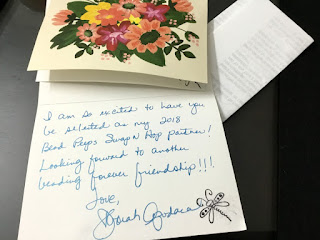 I am so excited to have you
be selected as my 2018
Bead Peeps Swap n Hop partner!
Looking forward to another
beading forever friendship!!!
Love,